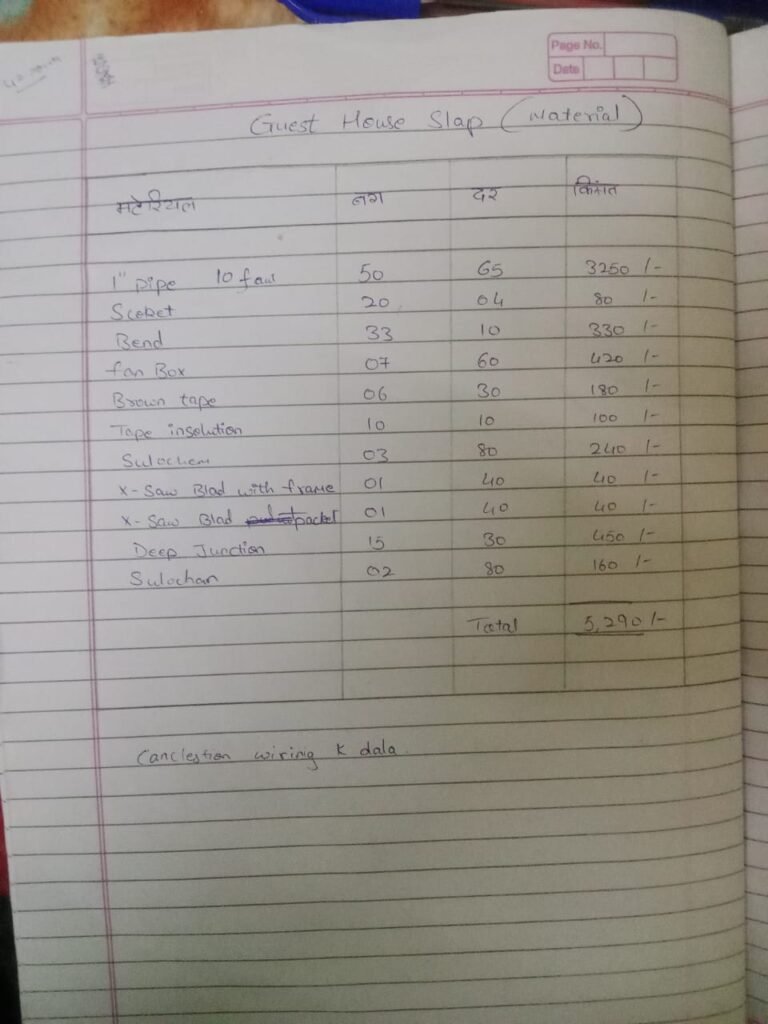 Page No.
Date
Guest House Slap (Material)
मटेरियल नग दर किंमत
1" pipe 10 faut 50 65 3250 /-
Scoket 20 04 80 /-
Bend 33 10 330 /-
fan Box 07 60 420 /-
Brown tape 06 30 180 /-
Tape insolution 10 10 100 /-
Sulochem 03 80 240 /-
x-saw Blad with frame 01 40 40 /-
x-saw Blad packet 01 40 40 /-
Deep Junction 15 30 450 /-
Sulochan 02 80 160 /-
Total 5,290 /-
wiring K dala